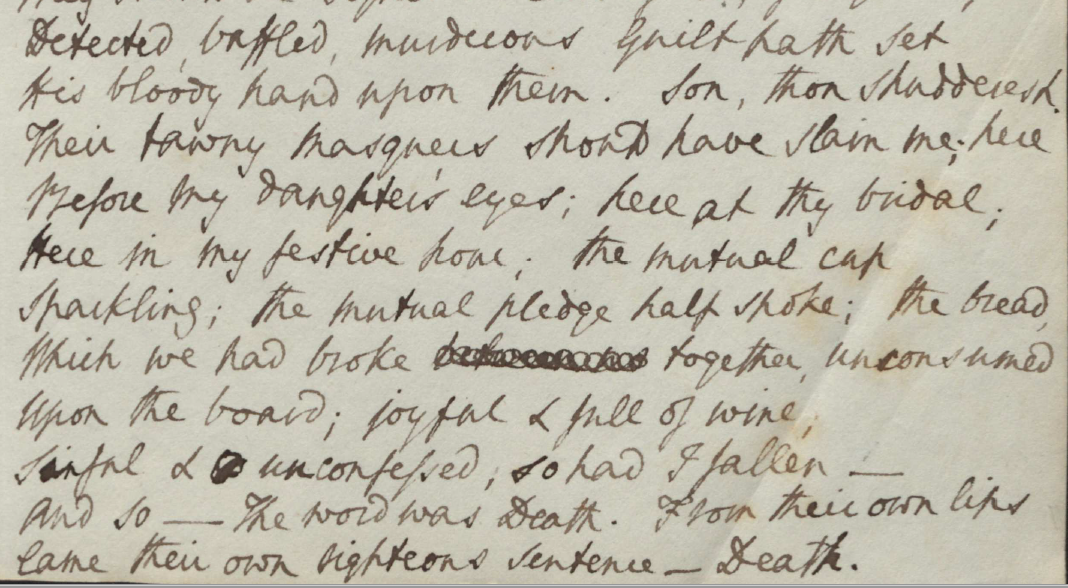 Detected, baffled, murderous Guilt hath set
His bloody hand upon them. Son, thou shudderest.
Their tawny masquers should have slain me; here
Before my daughter's eyes; here at thy bridal;
Here in my festive hour; the mutual cup
Sparkling; the mutual pledge half spoke; the bread,
Which we had broke together, unconsumed
Upon the board; joyful & full of wine;
Sinful & unconfessed; so had I fallen —
And so — The word was Death. From their own lips
Came their own righteous sentence — Death.